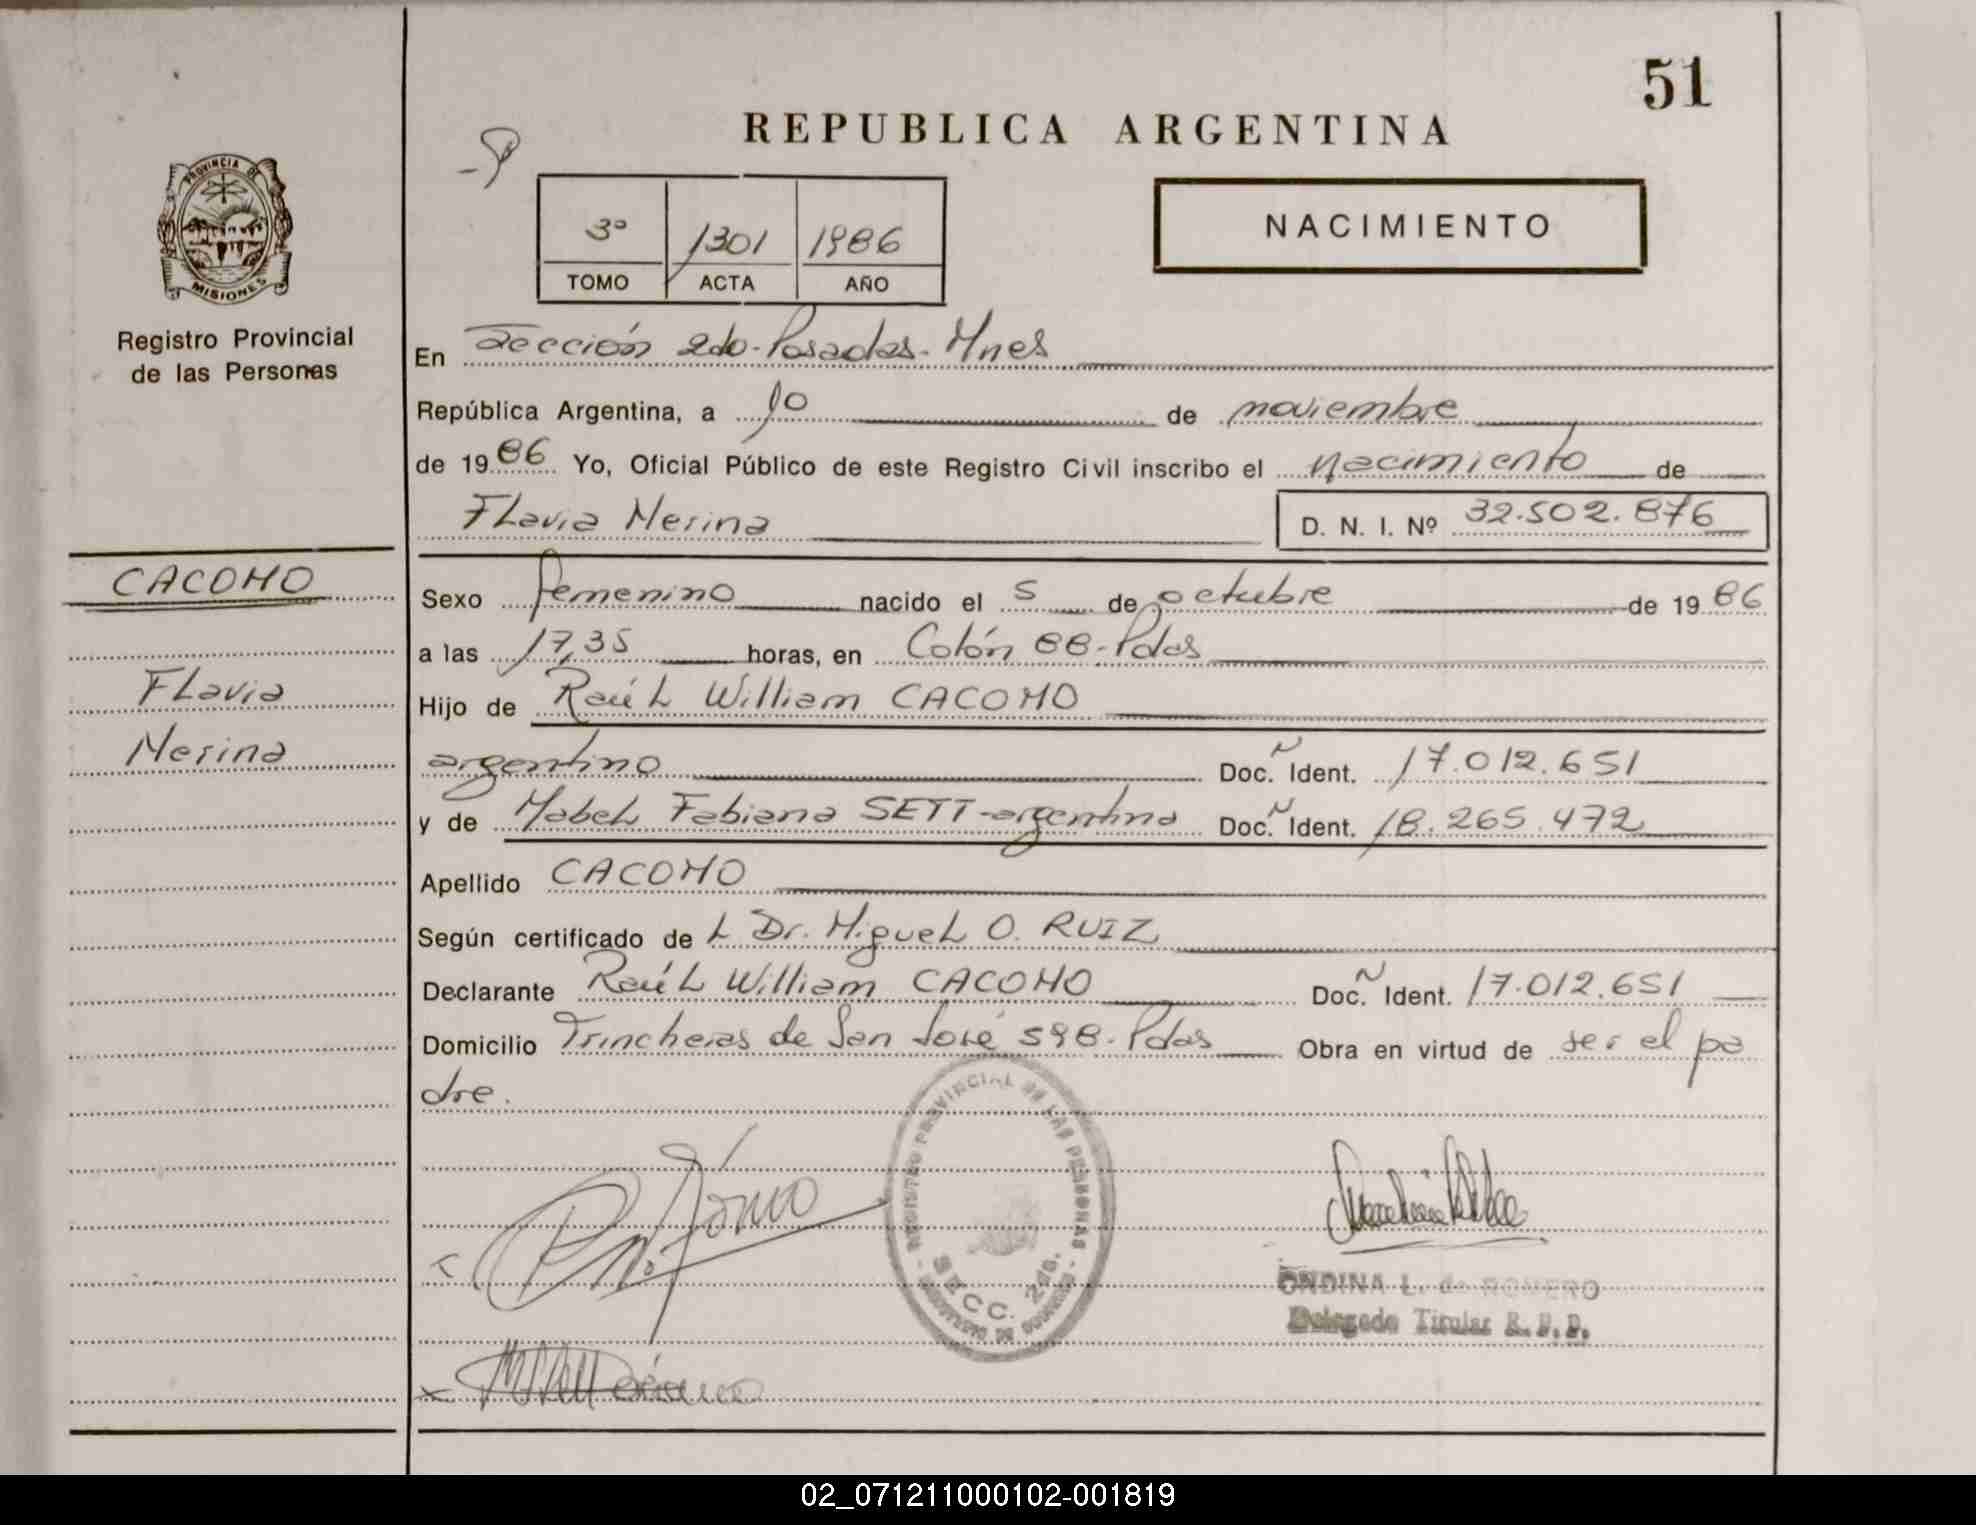 51
REPUBLICA ARGENTINA
PROVINCIA DE
MISIONES
Registro Provincial
de las Personas
3º 1301 1986
TOMO ACTA AÑO
NACIMIENTO
En Sección 2da-Posadas-Mnes
República Argentina, a 10 de noviembre
de 1986 Yo, Oficial Público de este Registro Civil inscribo el nacimiento de
Flavia Merina
D. N. I. Nº 32.502.876
CACOMO
Flavia
Merina
Sexo femenino nacido el 5 de octubre de 1986
a las 17,35 horas, en Colón 88-Pdas
Hijo de Raúl William CACOMO
argentino Doc. Ident. 17.012.651
y de Mabel Fabiana SETT-argentina Doc. Ident. 18.265.472
Apellido CACOMO
Según certificado de L Dr. Miguel O. RUIZ
Declarante Raúl William CACOMO Doc. Ident. 17.012.651
Domicilio Trincheras de San José 598-Pdas Obra en virtud de ser el pa
dre.
REGISTRO PROVINCIAL DE LAS PERSONAS
SECC. 2da.
ONDINA L. de ROMERO
Delegada Titular R.P.P.
02_071211000102-001819